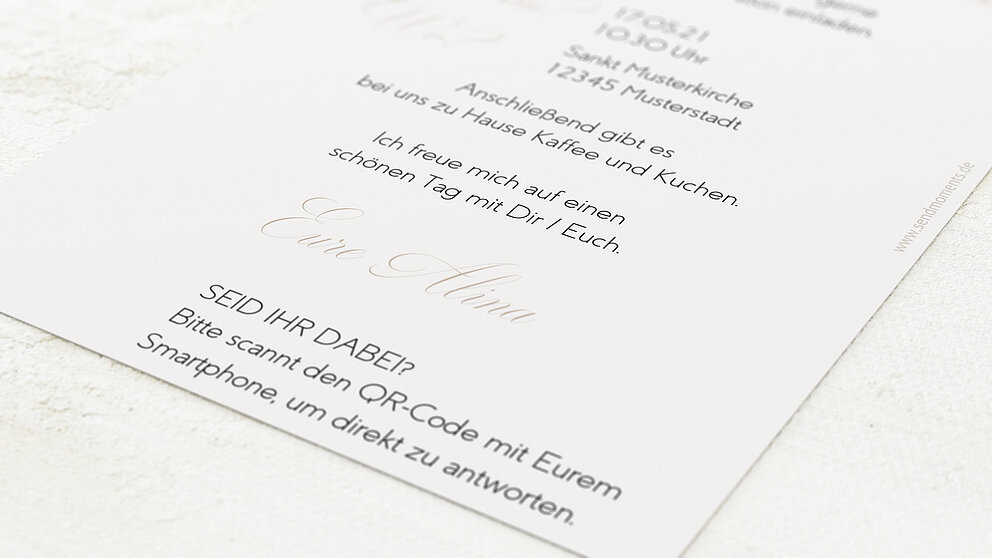 Gerne
einladen.
Wo?
17.05.21
10.30 Uhr
Sankt Musterkirche
12345 Musterstadt
Anschließend gibt es
bei uns zu Hause Kaffee und Kuchen.
Ich freue mich auf einen
schönen Tag mit Dir / Euch.
Eure Alina
SEID IHR DABEI?
Bitte scannt den QR-Code mit Eurem
Smartphone, um direkt zu antworten.
www.sendmoments.de